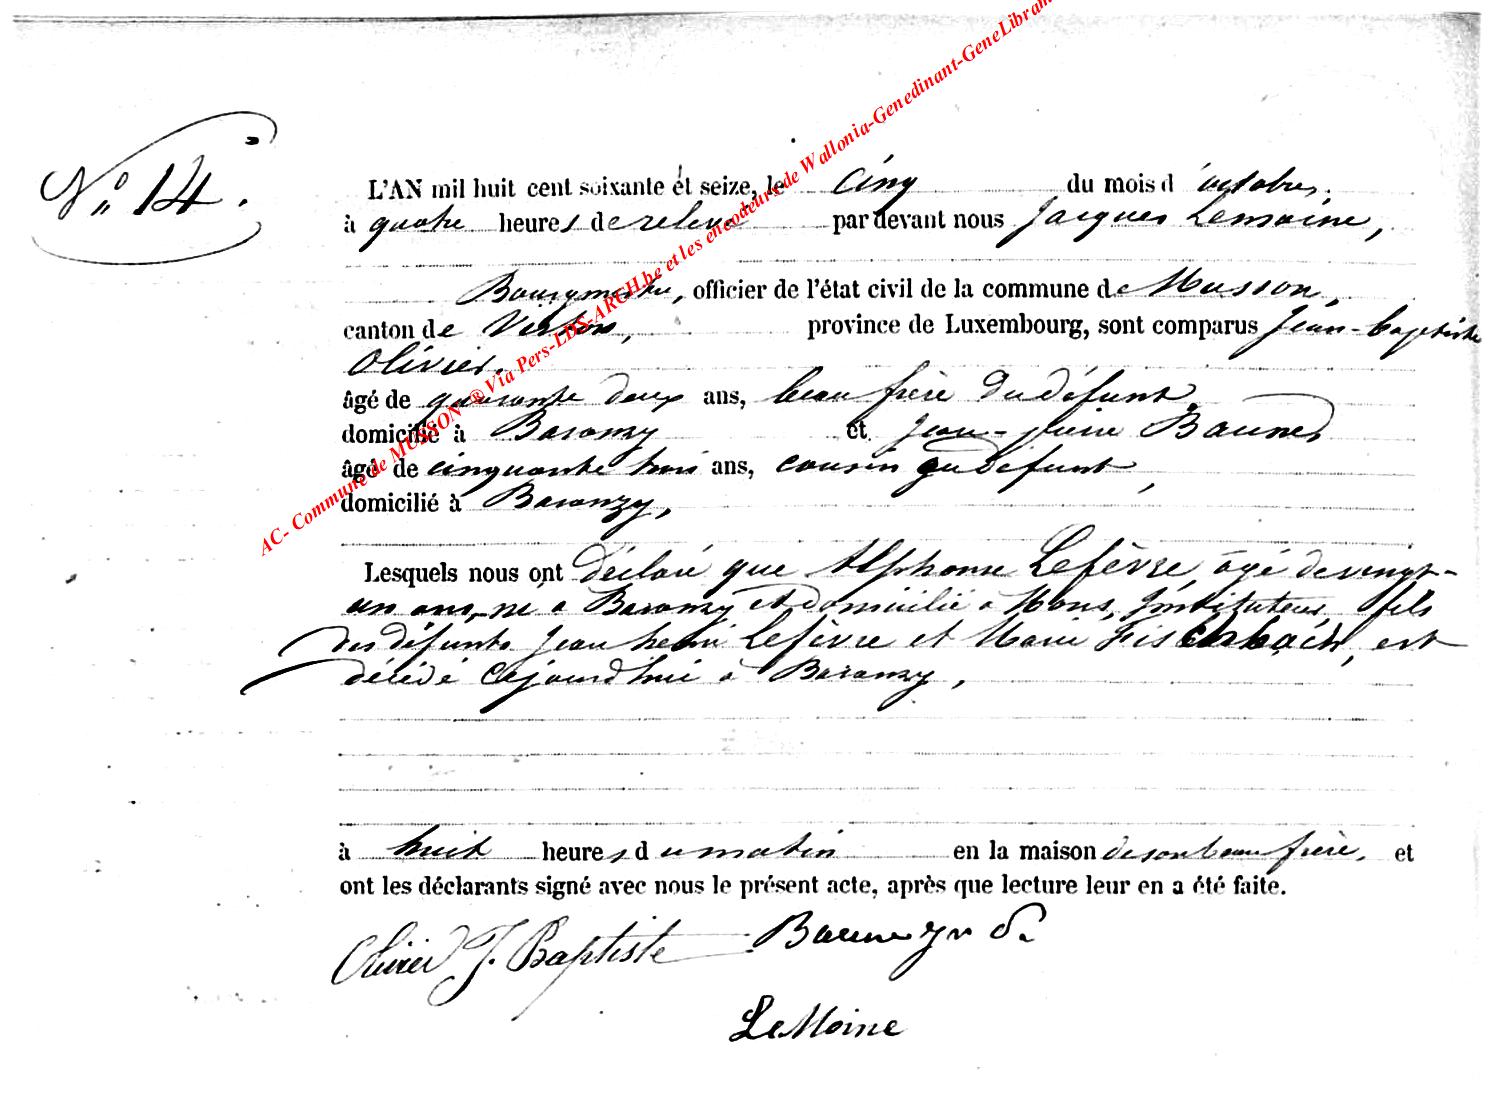 N° 14.
L'AN mil huit cent soixante et seize, le cinq du mois d'octobre,
à quatre heures de relevé par devant nous Jacques Lemoine,
Bourgmestre, officier de l'état civil de la commune de Musson,
canton de Virton, province de Luxembourg, sont comparus Jean-baptiste
Olivier,
âgé de quarante deux ans, beau frère du défunt
domicilié à Baranzy et Jean-pierre Baunet
âgé de cinquante trois ans, cousin du défunt,
domicilié à Baranzy,
Lesquels nous ont déclaré que Alphonse Lefèvre, âgé de vingt-
un ans, né à Baranzy et domicilié à Mons, Instituteur fils
des défunts Jean henri Lefèvre et Marie Fischbach, est
décédé cejourd'hui à Baranzy,
à huit heures du matin en la maison de son beau frère, et
ont les déclarants signé avec nous le présent acte, après que lecture leur en a été faite.
Olivier J. Baptiste
LeMoine
AC- Commune de MUSSON ® Via Pers-LDS-ARCH.be et les encodeurs de Wallonia-Genedinant-GeneLibran